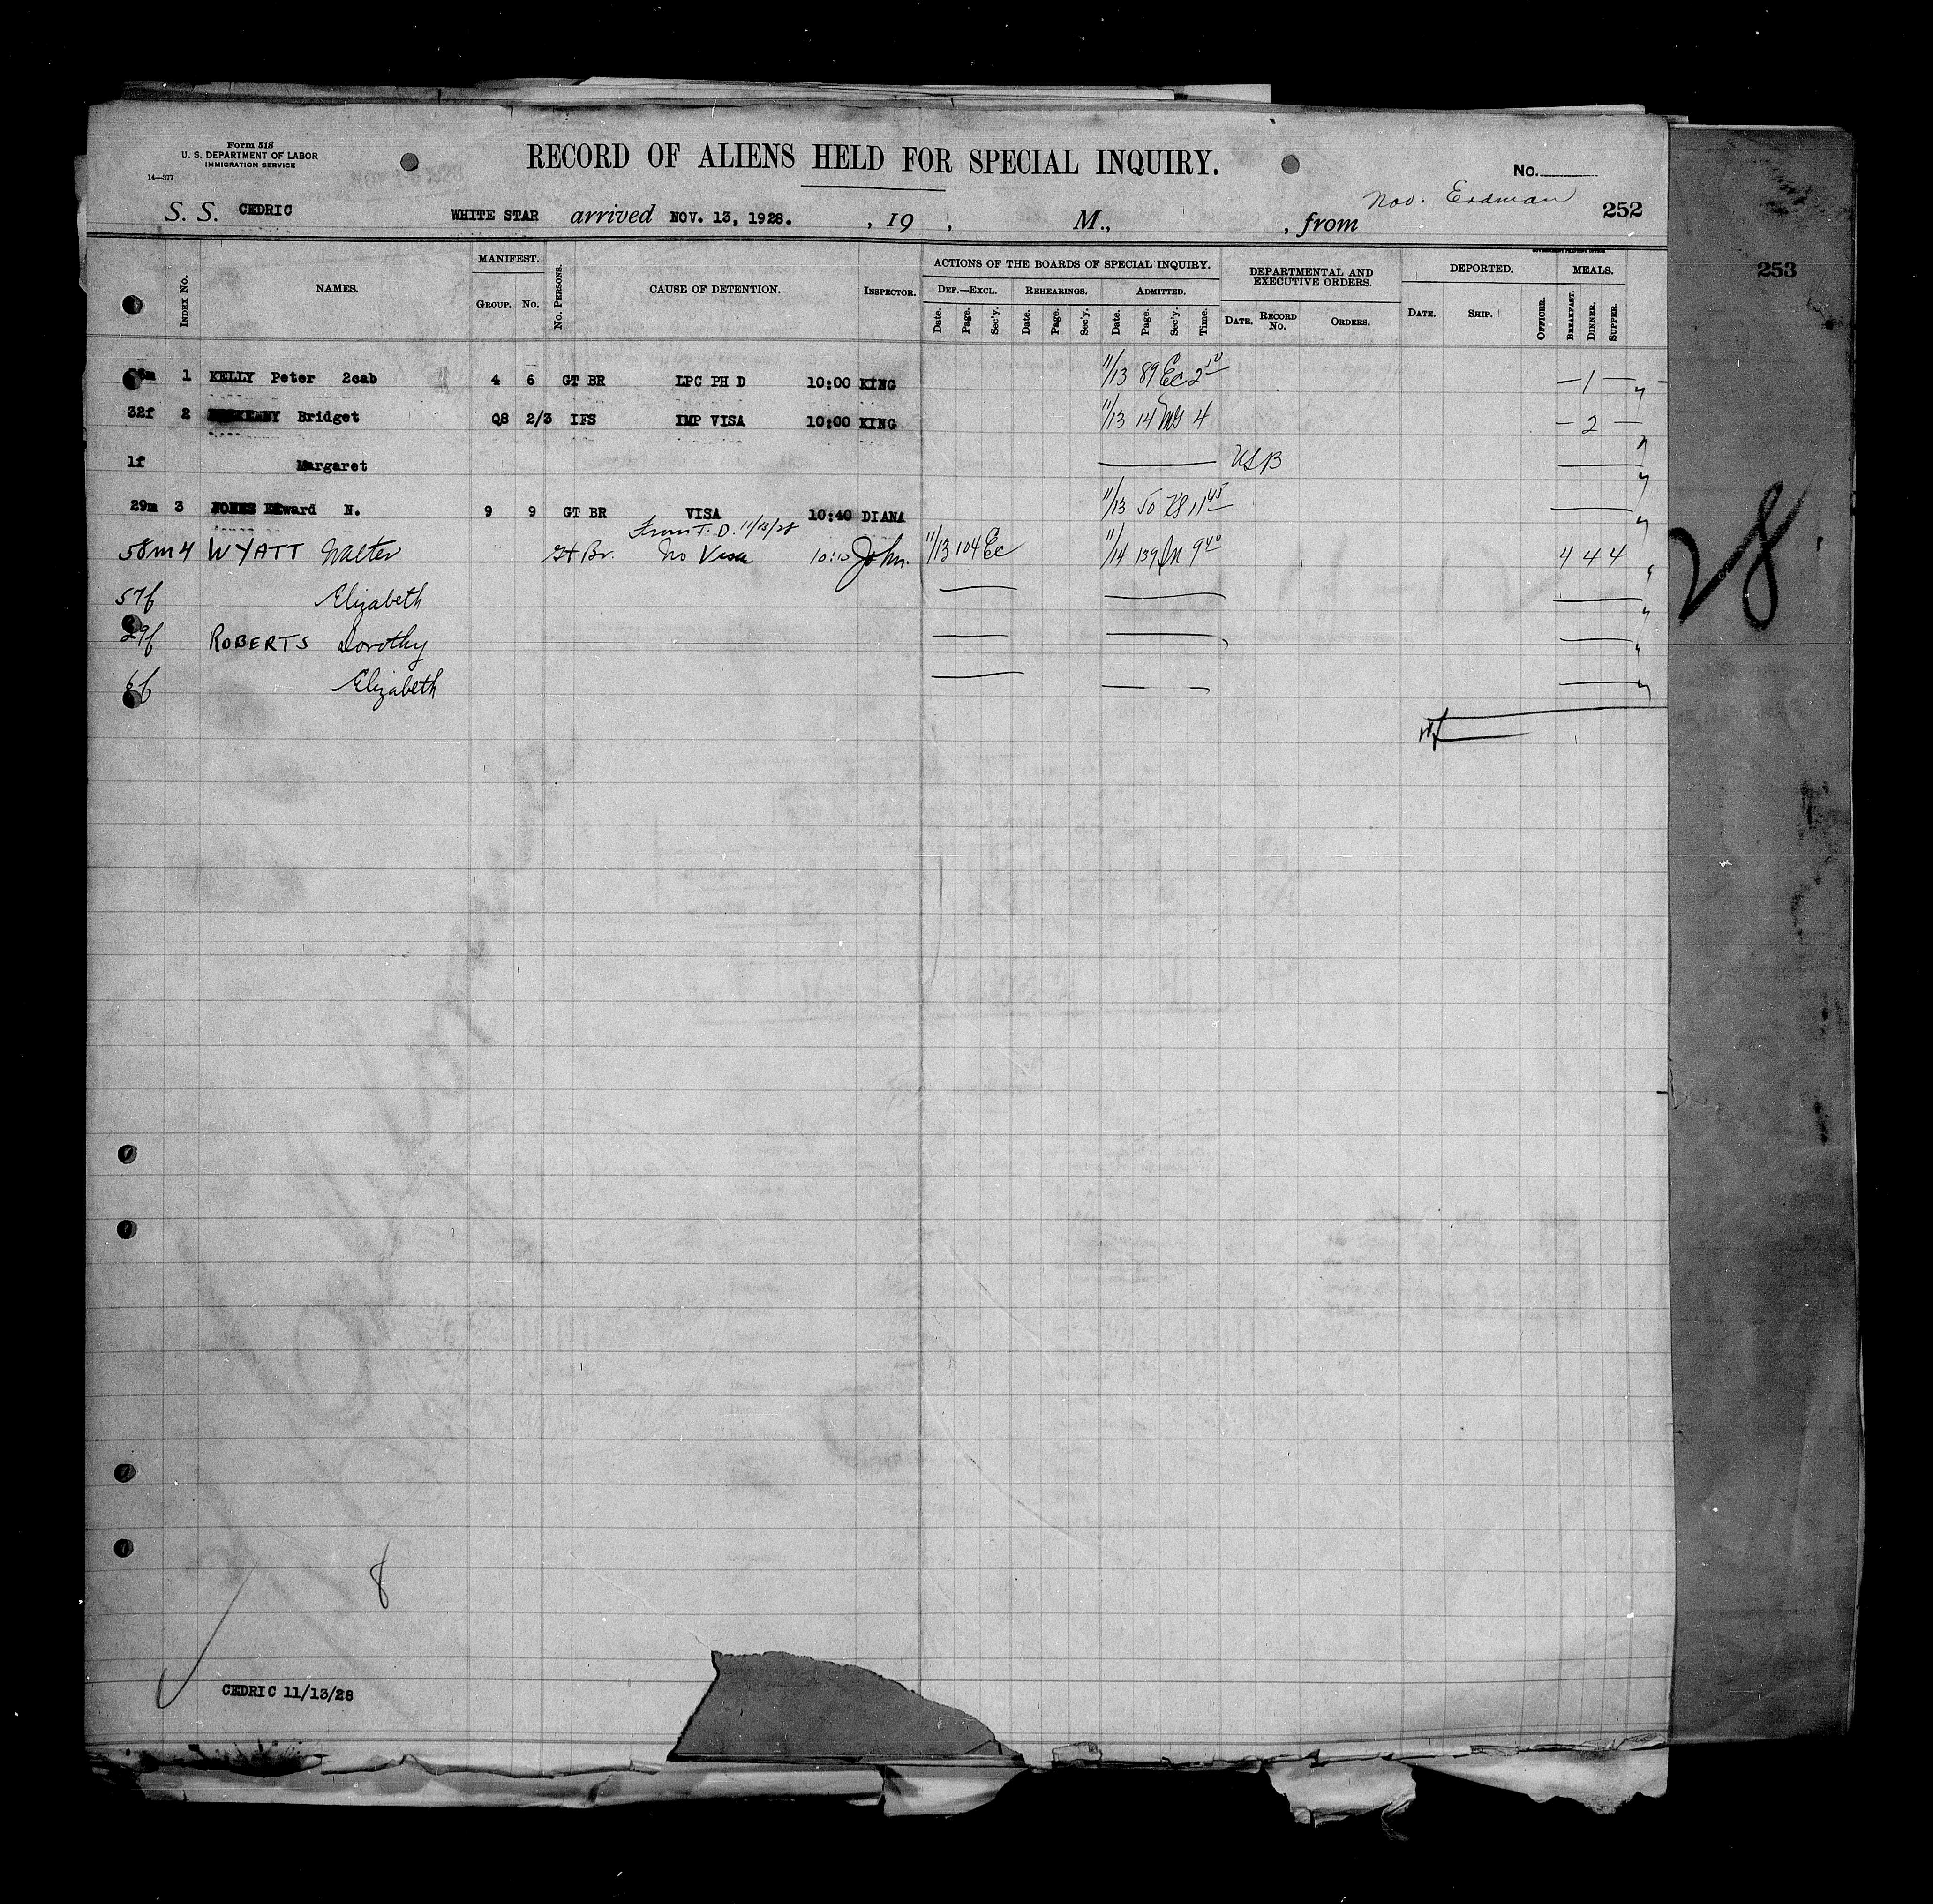 Form 518
U. S. DEPARTMENT OF LABOR
IMMIGRATION SERVICE
14—377
RECORD OF ALIENS HELD FOR SPECIAL INQUIRY.
No.
S. S. CEDRIC WHITE STAR arrived NOV. 13, 1928. , 19 , M., , from Nov. Erdman 252
253
INDEX No. NAMES. MANIFEST. GROUP. No. No. PERSONS. CAUSE OF DETENTION. INSPECTOR. ACTIONS OF THE BOARDS OF SPECIAL INQUIRY. DEPARTMENTAL AND EXECUTIVE ORDERS. DEPORTED. MEALS.
DEF.—EXCL. REHEARINGS. ADMITTED.
Date. Page. Sec'y. Date. Page. Sec'y. Date. Page. Sec'y. Time. DATE. RECORD No. ORDERS. DATE. SHIP. OFFICER. BREAKFAST. DINNER. SUPPER.
1 KELLY Peter 2cab 4 6 GT BR LPC PH D 10:00 KING 11/13 89 Ec 2 10 — 1 —
32f 2 Bridget Q8 2/3 IFS IMP VISA 10:00 KING 11/13 14 4 — 2 —
1f Margaret USB
29m 3 JONES Edward N. 9 9 GT BR VISA 10:40 DIANA 11/13 50 11 45
From T. D. 11/13/28
58m 4 WYATT Walter Gt Br. No Visa 10:10 John. 11/13 104 Ec 11/14 139 9 40 4 4 4
57f Elizabeth
29f ROBERTS Dorothy
6f Elizabeth
28
8
CEDRIC 11/13/28